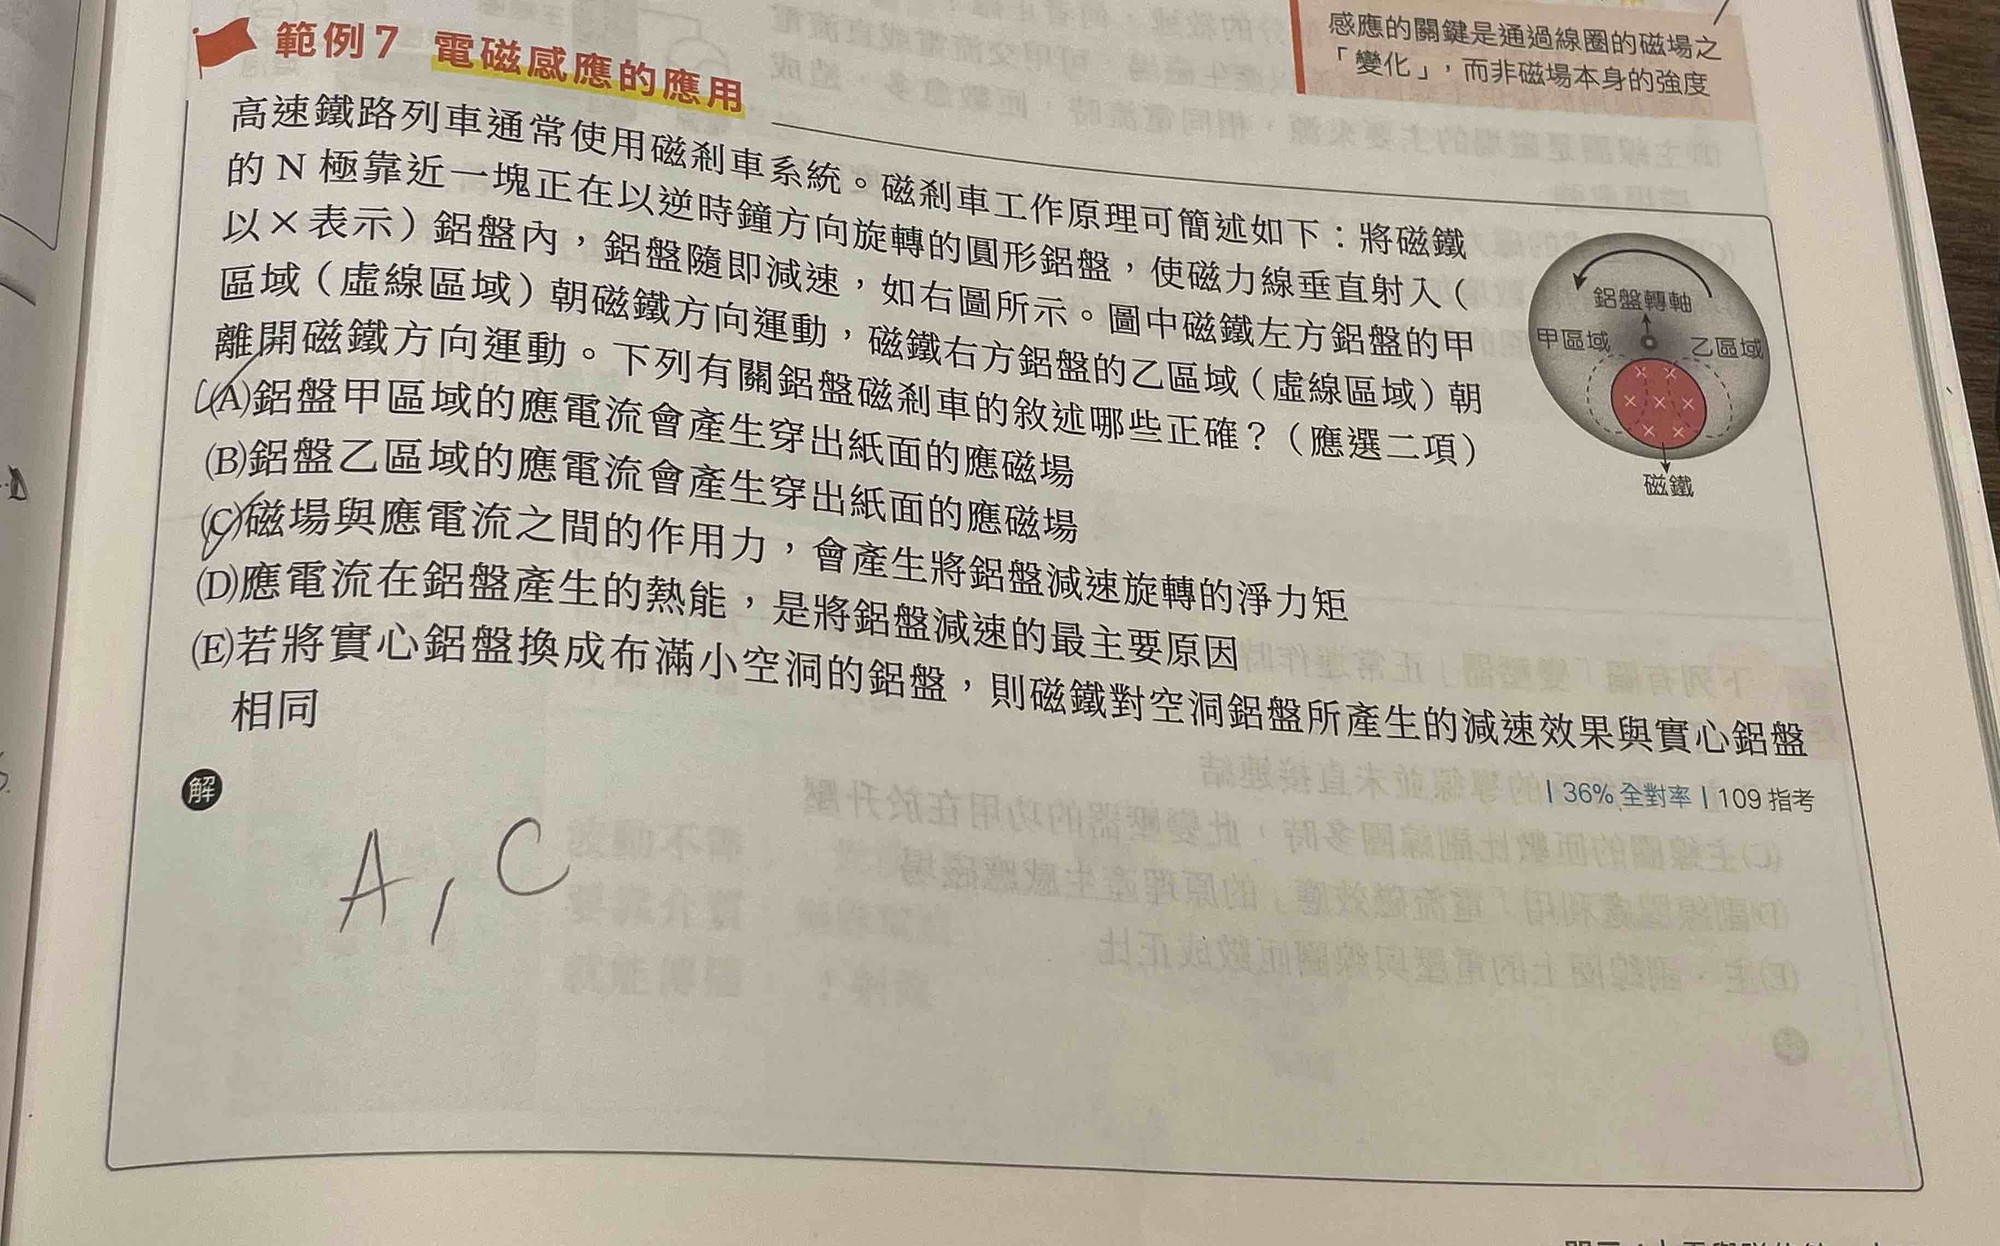 感應的關鍵是通過線圈的磁場之
「變化」，而非磁場本身的強度
範例7 電磁感應的應用
高速鐵路列車通常使用磁剎車系統。磁剎車工作原理可簡述如下：將磁鐵
的 N 極靠近一塊正在以逆時鐘方向旋轉的圓形鋁盤，使磁力線垂直射入（
以×表示）鋁盤內，鋁盤隨即減速，如右圖所示。圖中磁鐵左方鋁盤的甲
區域（虛線區域）朝磁鐵方向運動，磁鐵右方鋁盤的乙區域（虛線區域）朝
離開磁鐵方向運動。下列有關鋁盤磁剎車的敘述哪些正確？（應選二項）
(A)鋁盤甲區域的應電流會產生穿出紙面的應磁場
(B)鋁盤乙區域的應電流會產生穿出紙面的應磁場
(C)磁場與應電流之間的作用力，會產生將鋁盤減速旋轉的淨力矩
(D)應電流在鋁盤產生的熱能，是將鋁盤減速的最主要原因
(E)若將實心鋁盤換成布滿小空洞的鋁盤，則磁鐵對空洞鋁盤所產生的減速效果與實心鋁盤
相同
鋁盤轉軸
甲區域
乙區域
× ×
× × ×
× ×
磁鐵
| 36% 全對率 | 109 指考
解
A, C